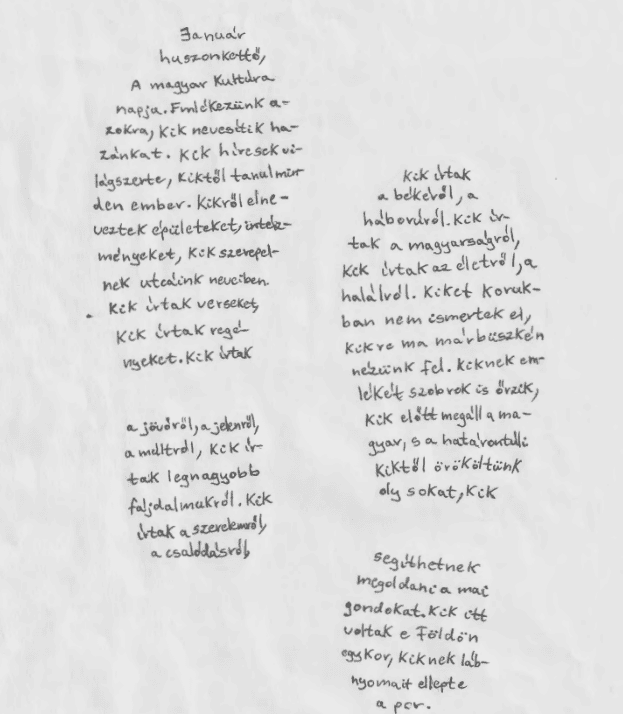 Január
huszonkettő,
A magyar Kultúra
napja. Emlékezünk a-
zokra, kik nevesítik ha-
zánkat. Kik híresek vi-
lágszerte, kiktől tanul min
den ember. Kikről elne-
veztek épületeket, intéz-
ményeket, kik szerepel-
nek utcáink neveiben.
Kik írtak verseket,
kik írtak regé-
nyeket. Kik írtak
a jövőről, a jelenről,
a múltról, kik ír-
tak legnagyobb
fájdalmukról. Kik
írtak a szerelemről,
a csalódásról,
kik írtak
a békéről, a
háborúról. Kik ír-
tak a magyarságról,
kik írtak az életről, a
halálról. Kiket koruk-
ban nem ismertek el,
kikre ma már büszkén
nézünk fel. Kiknek em-
lékét szobrok is őrzik,
kik előtt megáll a ma-
gyar, s a határontúli
kiktől örököltünk
oly sokat, kik
segíthetnek
megoldani a mai
gondokat. Kik itt
voltak e Földön
egykor, kiknek láb-
nyomait ellepte
a por.